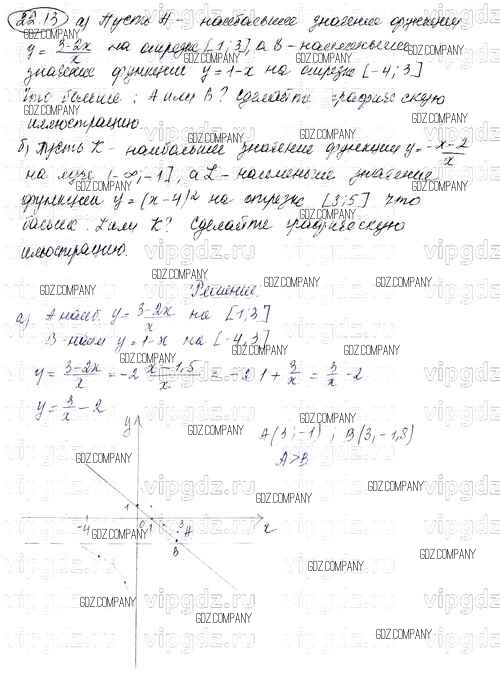 22.13) а) Пусть А - наибольшее значение функции
y = 3-2x/x на отрезке [1; 3], а В - наименьшее
значение функции y = 1-x на отрезке [-4; 3]
Что больше: А или В? Сделайте графическую
иллюстрацию.
б) Пусть К - наибольшее значение функции y = -x-2/x
на луче (-∞; -1], а L - наименьшее значение
функции y = (x-4)² на отрезке [3; 5] Что
больше: L или К? Сделайте графическую
иллюстрацию.
Решение.
а) А наиб. y = 3-2x/x на [1; 3]
В наим y = 1-x на [-4, 3]
y = 3-2x/x = -2 x-1,5/x = -2 1 + 3/x = 3/x - 2
y = 3/x - 2
A(3; -1) ; B(3, -1,8)
A > B
y
1
-4 0 1 3 x
A
B
GDZ.COMPANY
vipgdz.ru